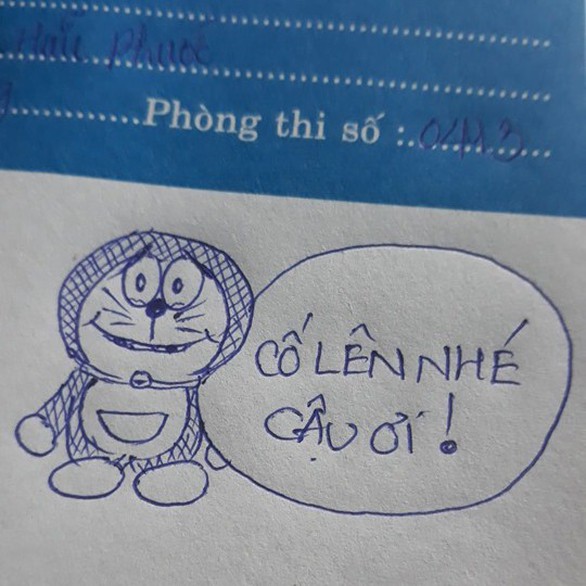 Hữu Phước
Phòng thi số :
CỐ LÊN NHÉ
CẬU ƠI !